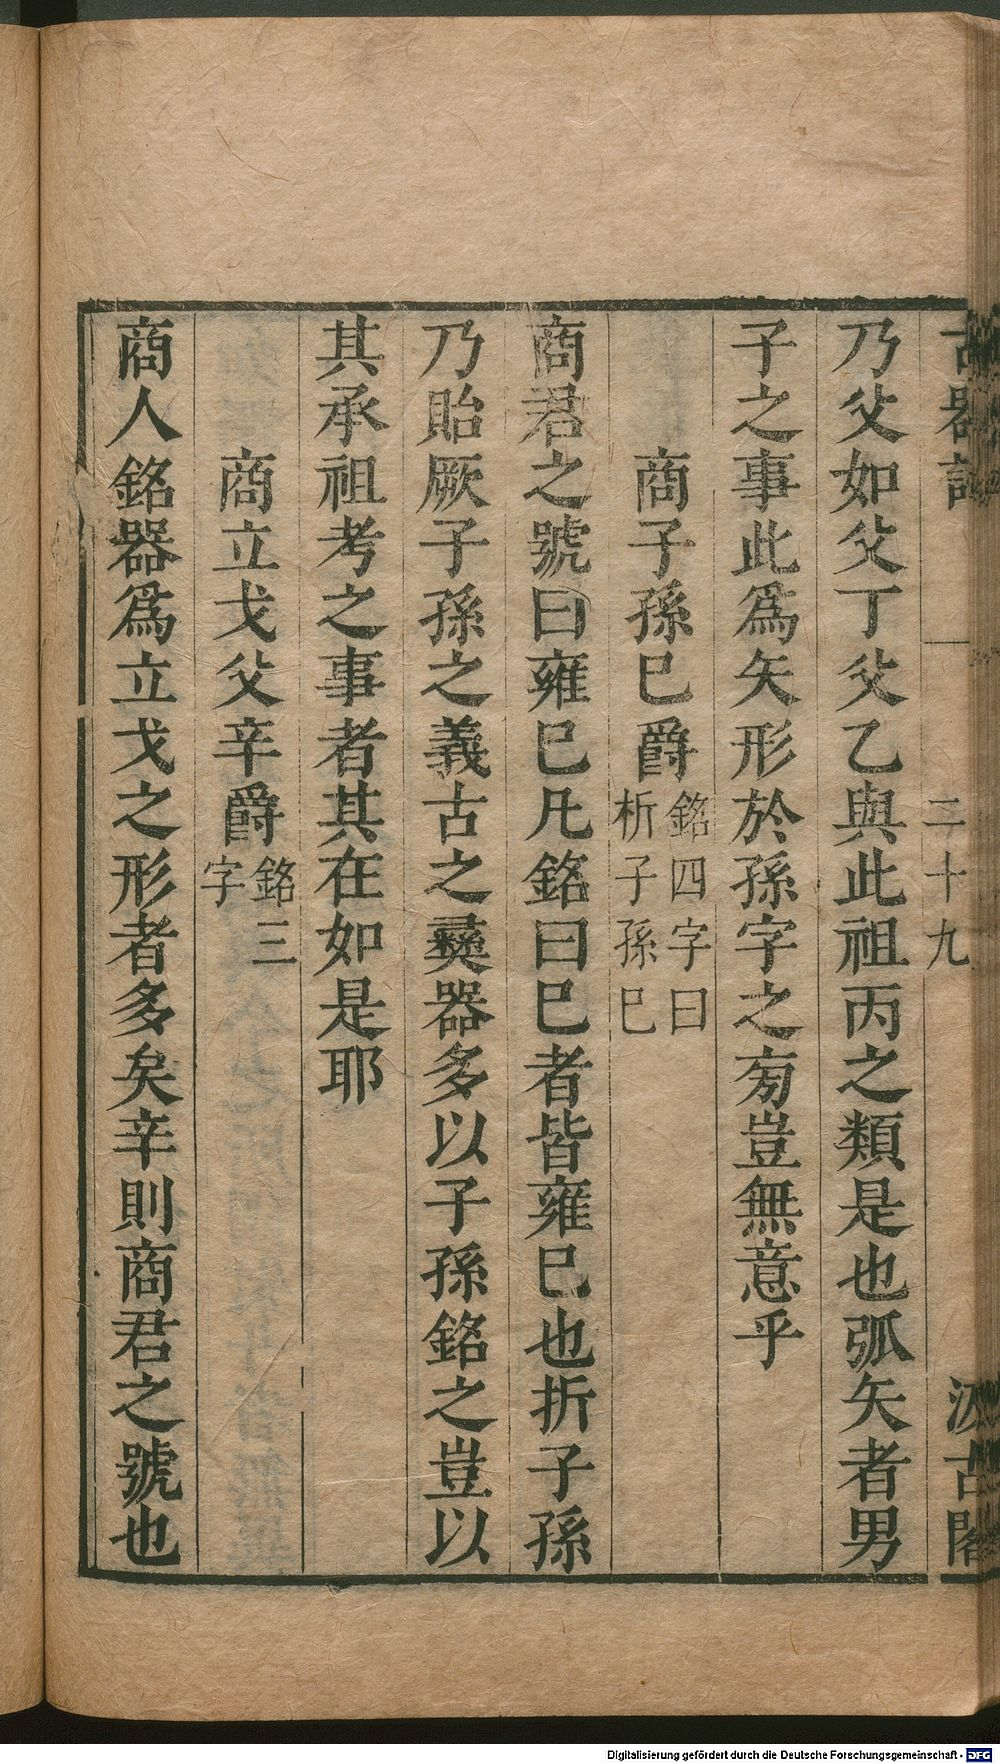 古器評 二十九 汲古閣
乃父如父丁父乙與此祖丙之類是也弧矢者男
子之事此爲矢形於孫字之㫄豈無意乎
商子孫巳爵銘四字曰
析子孫巳
商君之號曰雍巳凡銘曰巳者皆雍巳也折子孫
乃貽厥子孫之義古之彛器多以子孫銘之豈以
其承祖考之事者其在如是耶
商立戈父辛爵銘三
字
商人銘器爲立戈之形者多矣辛則商君之號也
Digitalisierung gefördert durch die Deutsche Forschungsgemeinschaft - DFG